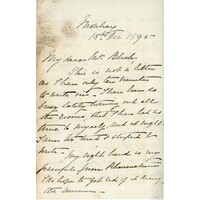 18th Dec 1895
My dear Mr.
This is not a letter
as I have only ten minutes
to write it. I have been so
busy lately having had all
the rooms, that I have had no
time to myself and at night
I am too tired &
write. My right hand is very
painful from Rheumatism
I hope to get rid of it during
the summer.